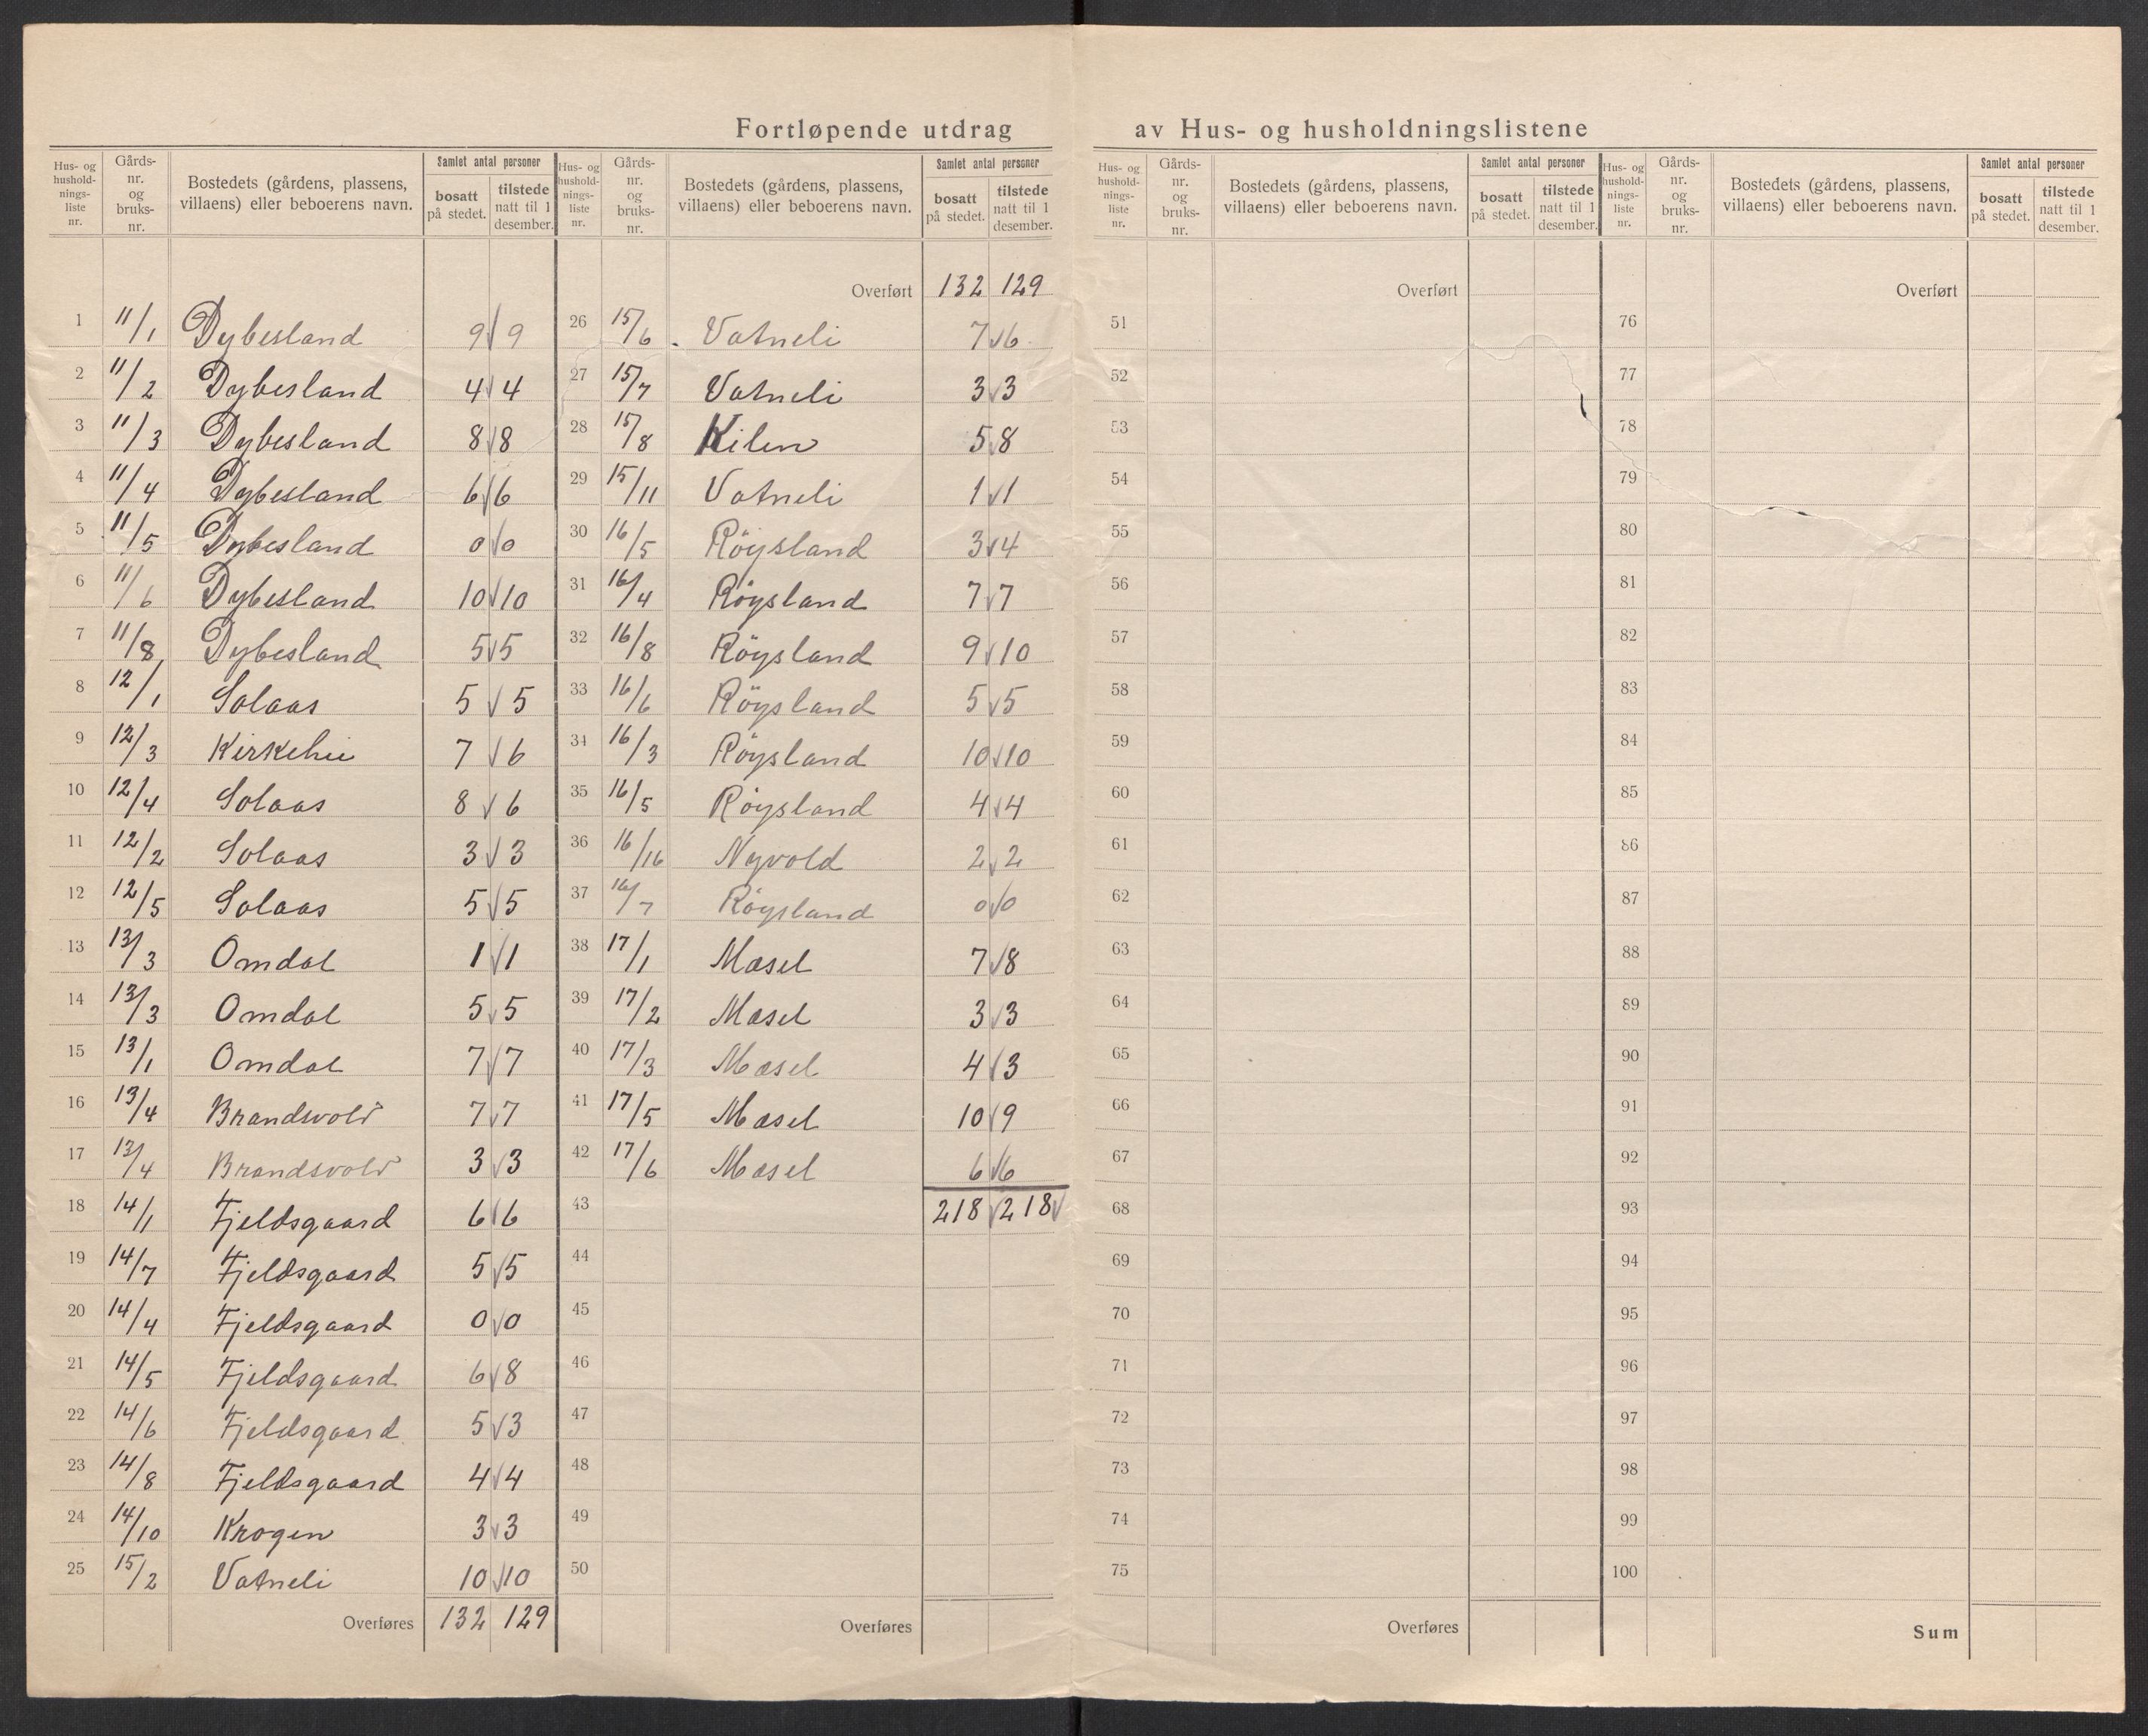 Fortløpende utdrag av Hus- og husholdningslistene
Hus- og hushold-nings-liste nr. | Gårds-nr. og bruks-nr. | Bostedets (gårdens, plassens, villaens) eller beboerens navn. | Samlet antal personer bosatt på stedet. | tilstede natt til 1 desember.
1 11/1 Dybesland 9 9
2 11/2 Dybesland 4 4
3 11/3 Dybesland 8 8
4 11/4 Dybesland 6 6
5 11/5 Dybesland 0 0
6 11/6 Dybesland 10 10
7 11/8 Dybesland 5 5
8 12/1 Solaas 5 5
9 12/3 Kirkehei 7 6
10 12/4 Solaas 8 6
11 12/2 Solaas 3 3
12 12/5 Solaas 5 5
13 13/3 Omdal 1 1
14 13/3 Omdal 5 5
15 13/1 Omdal 7 7
16 13/4 Brandsvold 7 7
17 13/4 Brandsvold 3 3
18 14/1 Fjeldsgaard 6 6
19 14/7 Fjeldsgaard 5 5
20 14/4 Fjeldsgaard 0 0
21 14/5 Fjeldsgaard 6 8
22 14/6 Fjeldsgaard 5 3
23 14/8 Fjeldsgaard 4 4
24 14/10 Krogen 3 3
25 15/2 Vatneli 10 10
Overføres 132 129
Hus- og hushold-nings-liste nr. | Gårds-nr. og bruks-nr. | Bostedets (gårdens, plassens, villaens) eller beboerens navn. | Samlet antal personer bosatt på stedet. | tilstede natt til 1 desember.
Overført 132 129
26 15/6 Vatneli 7 6
27 15/7 Vatneli 3 3
28 15/8 Kilen 5 8
29 15/11 Vatneli 1 1
30 16/5 Röysland 3 4
31 16/4 Röysland 7 7
32 16/8 Röysland 9 10
33 16/6 Röysland 5 5
34 16/3 Röysland 10 10
35 16/5 Röysland 4 4
36 16/16 Nyvold 2 2
37 16/7 Röysland 0 0
38 17/1 Mæsel 7 8
39 17/2 Mæsel 3 3
40 17/3 Mæsel 4 3
41 17/5 Mæsel 10 9
42 17/6 Mæsel 6 6
43 218 218
44
45
46
47
48
49
50
Overføres
Hus- og hushold-nings-liste nr. | Gårds-nr. og bruks-nr. | Bostedets (gårdens, plassens, villaens) eller beboerens navn. | Samlet antal personer bosatt på stedet. | tilstede natt til 1 desember.
Overført
51
52
53
54
55
56
57
58
59
60
61
62
63
64
65
66
67
68
69
70
71
72
73
74
75
Overføres
Hus- og hushold-nings-liste nr. | Gårds-nr. og bruks-nr. | Bostedets (gårdens, plassens, villaens) eller beboerens navn. | Samlet antal personer bosatt på stedet. | tilstede natt til 1 desember.
Overført
76
77
78
79
80
81
82
83
84
85
86
87
88
89
90
91
92
93
94
95
96
97
98
99
100
Sum